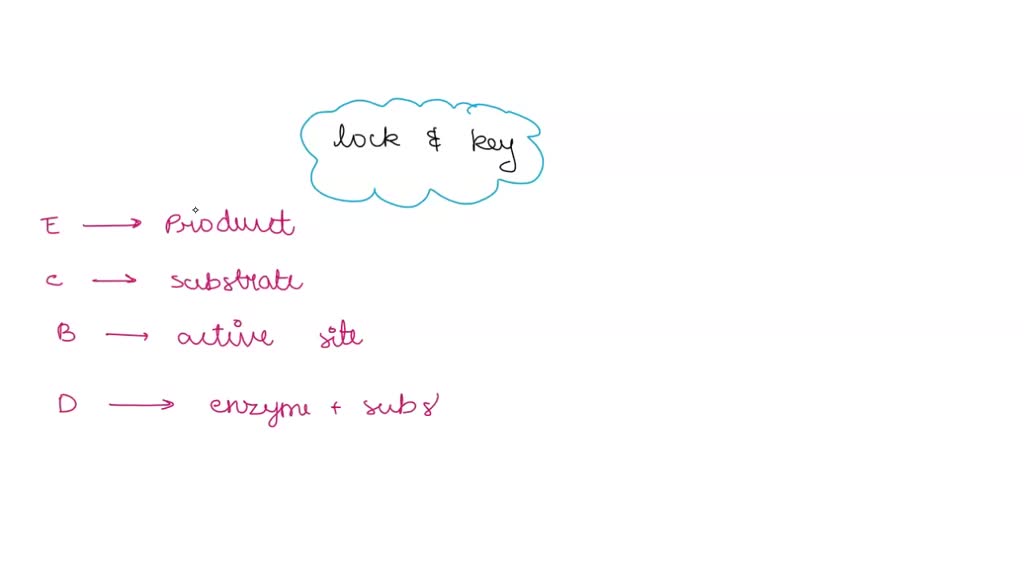 lock & key
E → Product
C → substrate
B → active site
D → enzyme + subs